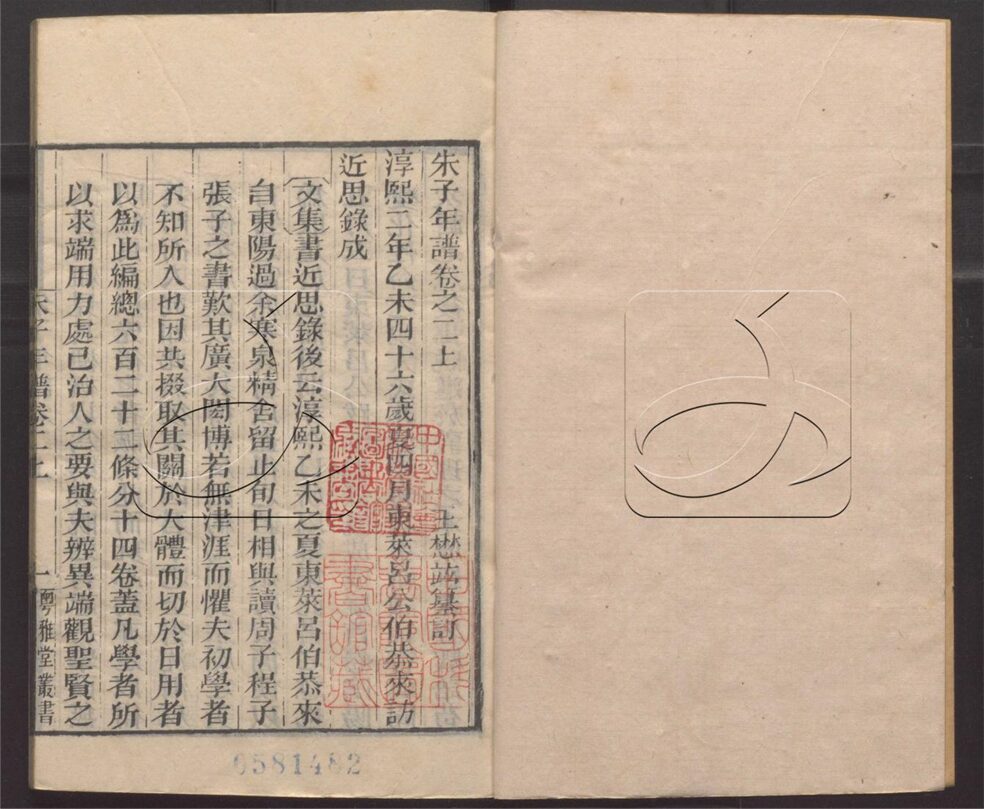 朱子年譜卷之二上
王懋竑纂訂
淳熙二年乙未四十六歲夏四月東萊呂公伯恭來訪
近思錄成
文集書近思錄後云淳熙乙未之夏東萊呂伯恭來
自東陽過余寒泉精舍留止旬日相與讀周子程子
張子之書歎其廣大閎博若無津涯而懼夫初學者
不知所入也因共掇取其關於大體而切於日用者
以爲此編總六百二十二條分十四卷蓋凡學者所
以求端用力處己治人之要與夫辨異端觀聖賢之
朱子年譜卷二上
一
粵雅堂叢書
0581482